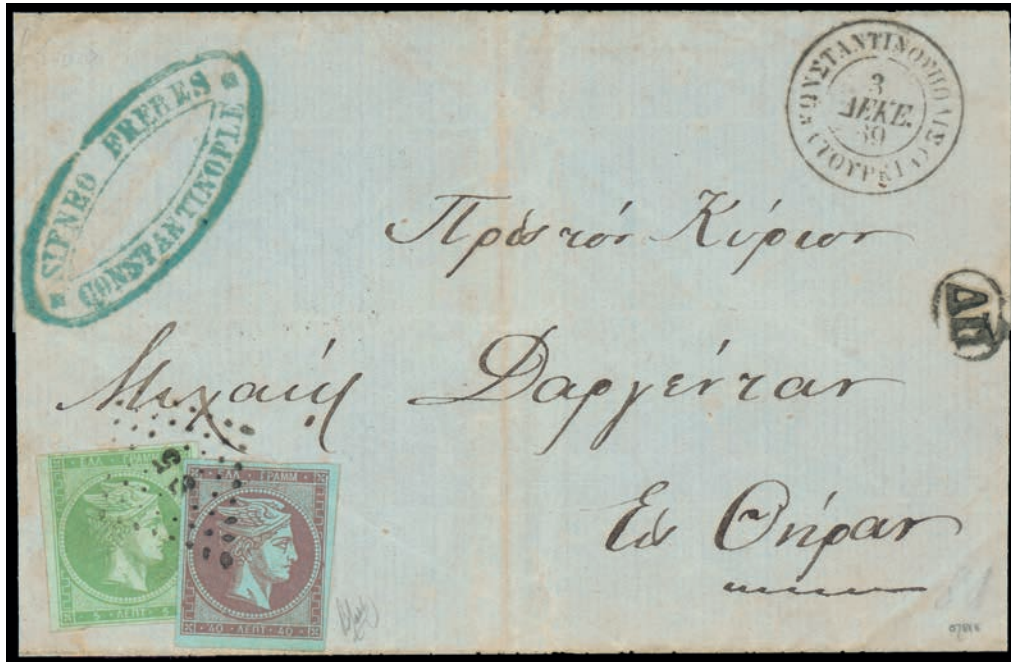 SIFNEO FRERES
CONSTANTINOPLE
ΚΩΝΣΤΑΝΤΙΝΟΥΠΟΛΙΣ
3
ΔΕΚΕ.
69
(ΤΟΥΡΚΙΑ)
Πρὸς τὸν Κύριον
ΔΠ
Μιχαὴλ Δαργένταν
Εἰς Θήραν
ΕΛΛ · ΓΡΑΜΜ
5 · ΛΕΠΤ · 5
ΕΛΛ · ΓΡΑΜΜ
40 · ΛΕΠΤ · 40